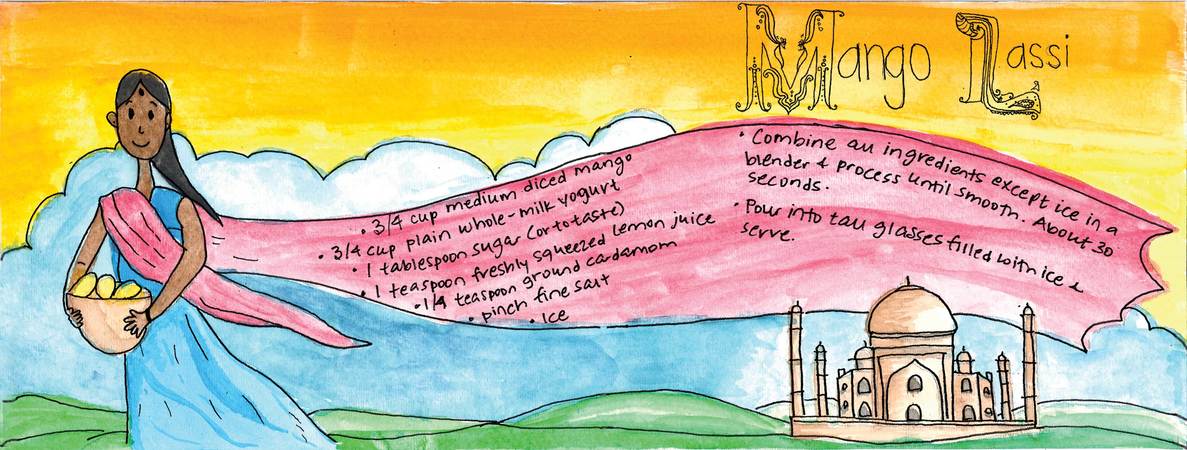 Mango Lassi
• 3/4 cup medium diced mango
• 3/4 cup plain whole-milk yogurt
• 1 tablespoon sugar (or to taste)
• 1 teaspoon freshly squeezed lemon juice
• 1/4 teaspoon ground cardamom
• pinch fine salt
• Ice
• Combine all ingredients except ice in a
blender & process until smooth. About 30
seconds.
• Pour into tall glasses filled with ice &
serve.